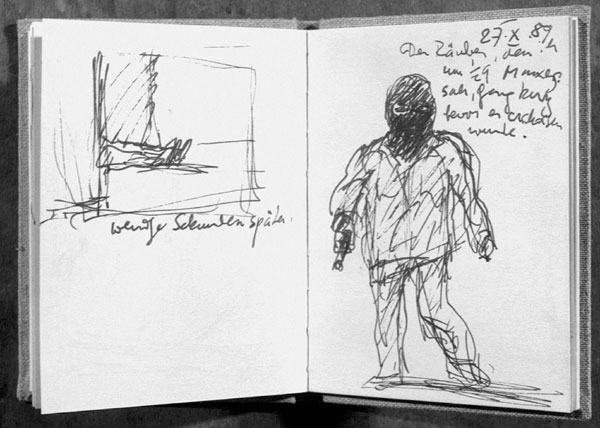 wenige Sekunden später.
27. X. 89
Der Räuber, den
um ½9
sah, ganz kurz
bevor er erschossen
wurde.